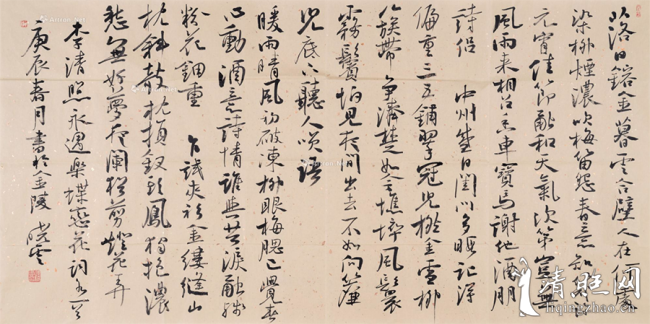 落日鎔金暮雲合璧人在何處
染柳煙濃吹梅笛怨春意知幾許
元宵佳節融和天氣次第豈無
風雨來相召香車寶馬謝他酒朋
詩侶 中州盛日閨門多暇記得
偏重三五鋪翠冠兒撚金雪柳
簇帶爭濟楚如今憔悴風鬟
霧鬢怕見夜間出去不如向簾
兒底下聽人笑語
暖雨晴風初破凍柳眼梅腮已覺春
心動酒意詩情誰與共淚融殘
粉花鈿重 乍試夾衫金縷縫山
枕斜欹枕損釵頭鳳獨抱濃
愁無好夢夜闌猶剪燈花弄
李清照永遇樂蝶戀花詞二首
庚辰春月書於金陵 曉雲
清旺网